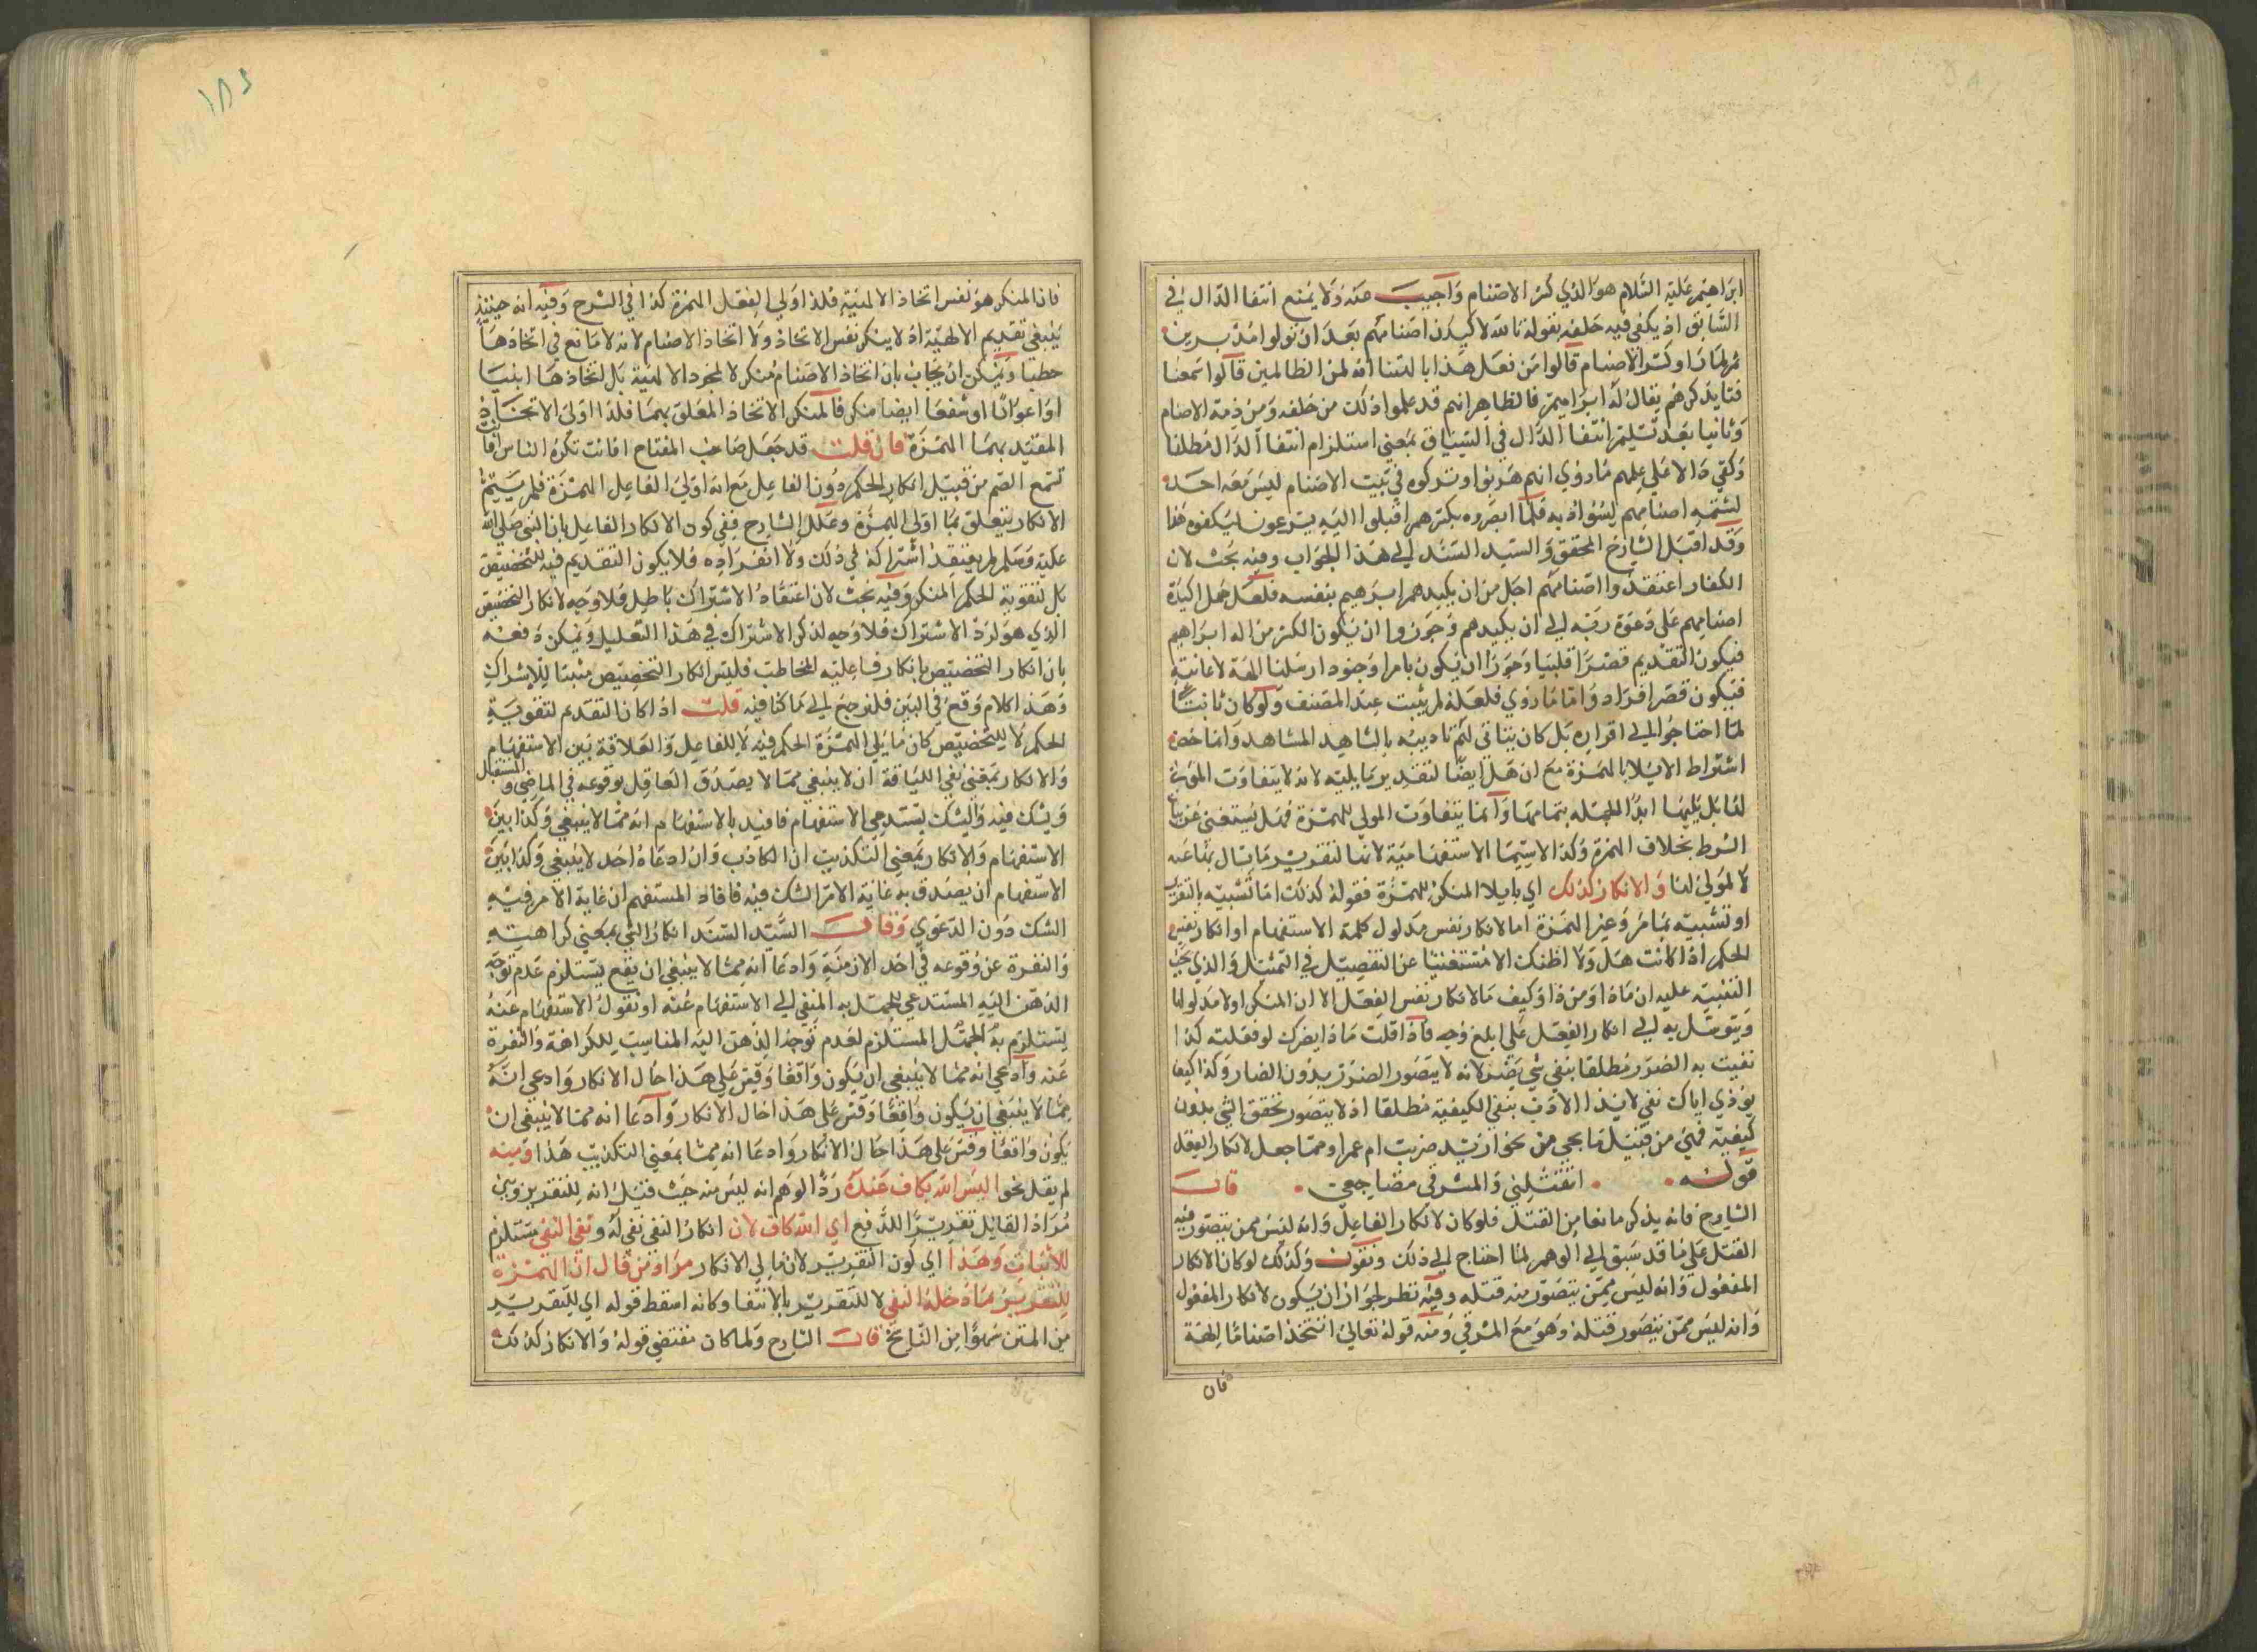 ابراهيم عليه السلام هو الذي كسر الاصنام واجيب عنه ولا يمنع انتفا الدال في
السابق اذ يكفي فيه حلفه بقوله تالله لاكيدن اصنامكم بعد ان تولوا مدبرين
ثم لما راوا كسر الاصنام قالوا من فعل هذا بالهتنا انه لمن الظالمين قالوا سمعنا
فتا يذكرهم يقال له ابراهيم فالظاهر انهم قد علموا ذلك من حلفه ومن ذمه الاصنام
وثانيا بعد تسليم انتفا الدال في السياق بمعني استلزام انتفا الدال مطلقا
وكفي دالا علي علمهم ما روي انهم هربوا وتركوه في بيت الاصنام ليس معه احد
فلما ابصروه يكسرهم اقبلوا اليه يسرعون ليكفوه هذا
وقد اقبل الشارح المحقق والسيد السند الي هذا الجواب وفيه بحث لان
الكفار اعتقدوا اصنامهم اجل من ان يكيدهم ابرهيم بنفسه فلعل حمل اكيدة
اصنامهم علي دعوة ربه الي ان يكيدهم وجوزوا ان يكون الكسر من اله ابراهيم
فيكون التقديم قصرا قلبيا وجوزا ان يكون بامرا وجنود ارسلها الهه لاعانته
فيكون قصر افراد واما ما روي فلعله لم يثبت عند المصنف ولو كان ثابتا
لما احتاجوا الي اقراره بل كان يتاتي لهم تاديبه بالشاهد المشاهد وانما خص
اشتراط الايلا بالهمزة مع ان هل ايضا لتقدير ما يليه لانه لا يتفاوت المولي
لها بل يليها ابدا الجمله بتمامها وانما يتفاوت المولي للهمزة فهل يستغني عن بيان
الشرط بخلاف الهمزة وكذا الاسما الاستفهامية لانها لتقرير ما يسال بها عنه
لا لمولي لها والانكار كذلك اي بايلا المنكر للهمزة فقوله كذلك اما تشبيه بالتقرير
او تشبيه بما مر وغير الهمزة اما لانكار نفس مدلول كلمة الاستفهام او انكار نفس
الحكم اذا كانت هل ولا اظنك الا مستغنيا عن التفصيل في التمثيل والذي يجب
التنبيه عليه ان ماذا ومن ذا وكيف ما لانكار نفس الفعل الا ان المنكر اولا مدلولها
ويتوسل به الي انكار الفعل علي ابلغ وجه فاذا قلت ماذا يضرك لو فعلت كذا
نفيت به الضرر مطلقا بنفي شي يضر لانه لا يتصور الضرر بدون الضار وكذا كيف
يوذي اباك نفي لايذا الاذب بنفي الكيفية مطلقا اذ لا يتصور تحقق الشي بدون
كيفية فهي من قبيل ما يجي من نحو ازيد ضربت ام عمرا ومما جعل لانكار الفعل
قوله • ايقتلني والمشرفي مضاجعي • قال
الشارح فانه يذكر مانعا من القتل فلو كان لانكار الفاعل وانه ليس ممن يتصور منه
القتل علي ما قد سبق الي الوهم لما احتاج الي ذلك ونقول وكذلك لو كان الانكار
المفعول وانه ليس ممن يتصور منه قتله وفيه نظر لجواز ان يكون لانكار المفعول
وانه ليس ممن يتصور قتله وهو مع المشرفي ومنه قوله تعالي اتتخذ اصناما الهة
فان
١٨٢
فان المنكر هو نفس اتخاذ الالهية فلذا اولي الفعل الهمزة كذا في الشرح وفيه انه حينئذ
ينبغي تقديم الالهية اذ لا ينكر نفس الاتخاذ ولا اتخاذ الاصنام لانه لا مانع في اتخاذها
حطبا ويمكن ان يجاب بان اتخاذ الاصنام منكر لا لمجرد الالهية بل اتخاذها ابنيا
او اعوانا او شفعا ايضا منكر فالمنكر الاتخاذ المعلق بهما فلذا اولي الاتخاذ
المقيد بهما الهمزة فان قلت قد جعل صاحب المفتاح افانت تكره الناس افانت
تسمع الصم من قبيل انكار الحكم دون الفاعل مع انه اولي الفاعل الهمزة فلم يتم
الانكار يتعلق بما اولي الهمزة وعلل الشارح نفي كون الانكار الفاعل بان النبي صلي الله
عليه وسلم لم يعتقد اشتراكه في ذلك ولا انفراده فلا يكون التقديم فيه للتخصيص
بل لتقوية الحكم المنكر وفيه بحث لان اعتقاد الاشتراك باطل فلا وجه لانكار التخصيص
الذي هو لرد الاشتراك فلا وجه لذكر الاشتراك في هذا التعليل ويمكن دفعه
بان انكار التخصيص بانكار فاعليه المخاطب فليس انكار التخصيص مثبتا للاشراك
وهذا كلام وقع في البين فلنرجع الي ما كنا فيه قلت اذا كان التقديم لتقوية
الحكم لا للتخصيص كان ما يلي الهمزة الحكم فيه لا للفاعل والعلاقة بين الاستفهام
والانكار بمعني نفي اللياقة ان لا ينبغي مما لا يصدق العاقل بوقوعه في الماضي والمستقبل
ويشك فيه والشك يستدعي الاستفهام فافيد بالاستفهام انه مما لا ينبغي وكذا بين
الاستفهام والانكار بمعني التكذيب اذ الكاذب وان ادعاه احد لا ينبغي وكذا بين
الاستفهام ان يصدق به غاية الامر الشك فيه فافاد المستفهم ان غاية الامر فيه
الشك دون الدعوي وقال السيد السند انكار الشي بمعني كراهيته
والنفرة عن وقوعه في احد الازمنة وادعا انه مما لا ينبغي ان يقع يستلزم عدم توجه
الذهن اليه المستدعي للجهل به المفضي الي الاستفهام عنه او نقول الاستفهام عنه
يستلزم به الجهل المستلزم لعدم توجه الذهن اليه المناسب للكراهة والنفرة
عنه وادعي انه مما لا ينبغي ان يكون واقعا وقس علي هذا حال الانكار وادعي انه
مما لا ينبغي ان يكون واقعا وقس علي هذا حال الانكار وادعا انه مما لا ينبغي ان
يكون واقعا وقس علي هذا حال الانكار وادعا انه مما بمعني التكذيب هذا ومنه
لم يقل نحو اليس الله بكاف عبده ردا لوهم انه ليس منه حيث قيل انه للتقرير وبين
مراد القايل تقريرا للدفع اي الله كاف لان انكار النفي نفي له ونفي النفي يستلزم
للاثبات وهذا اي كون التقرير لا ما لي الانكار مراد من قال ان الهمزة
للتقرير بما دخله النفي لا للتقرير بالانتفا وكانه اسقط قوله اي للتقرير
من المتن سهوا من الناسخ قال الشارح ولما كان مقتضي قوله والانكار كذلك